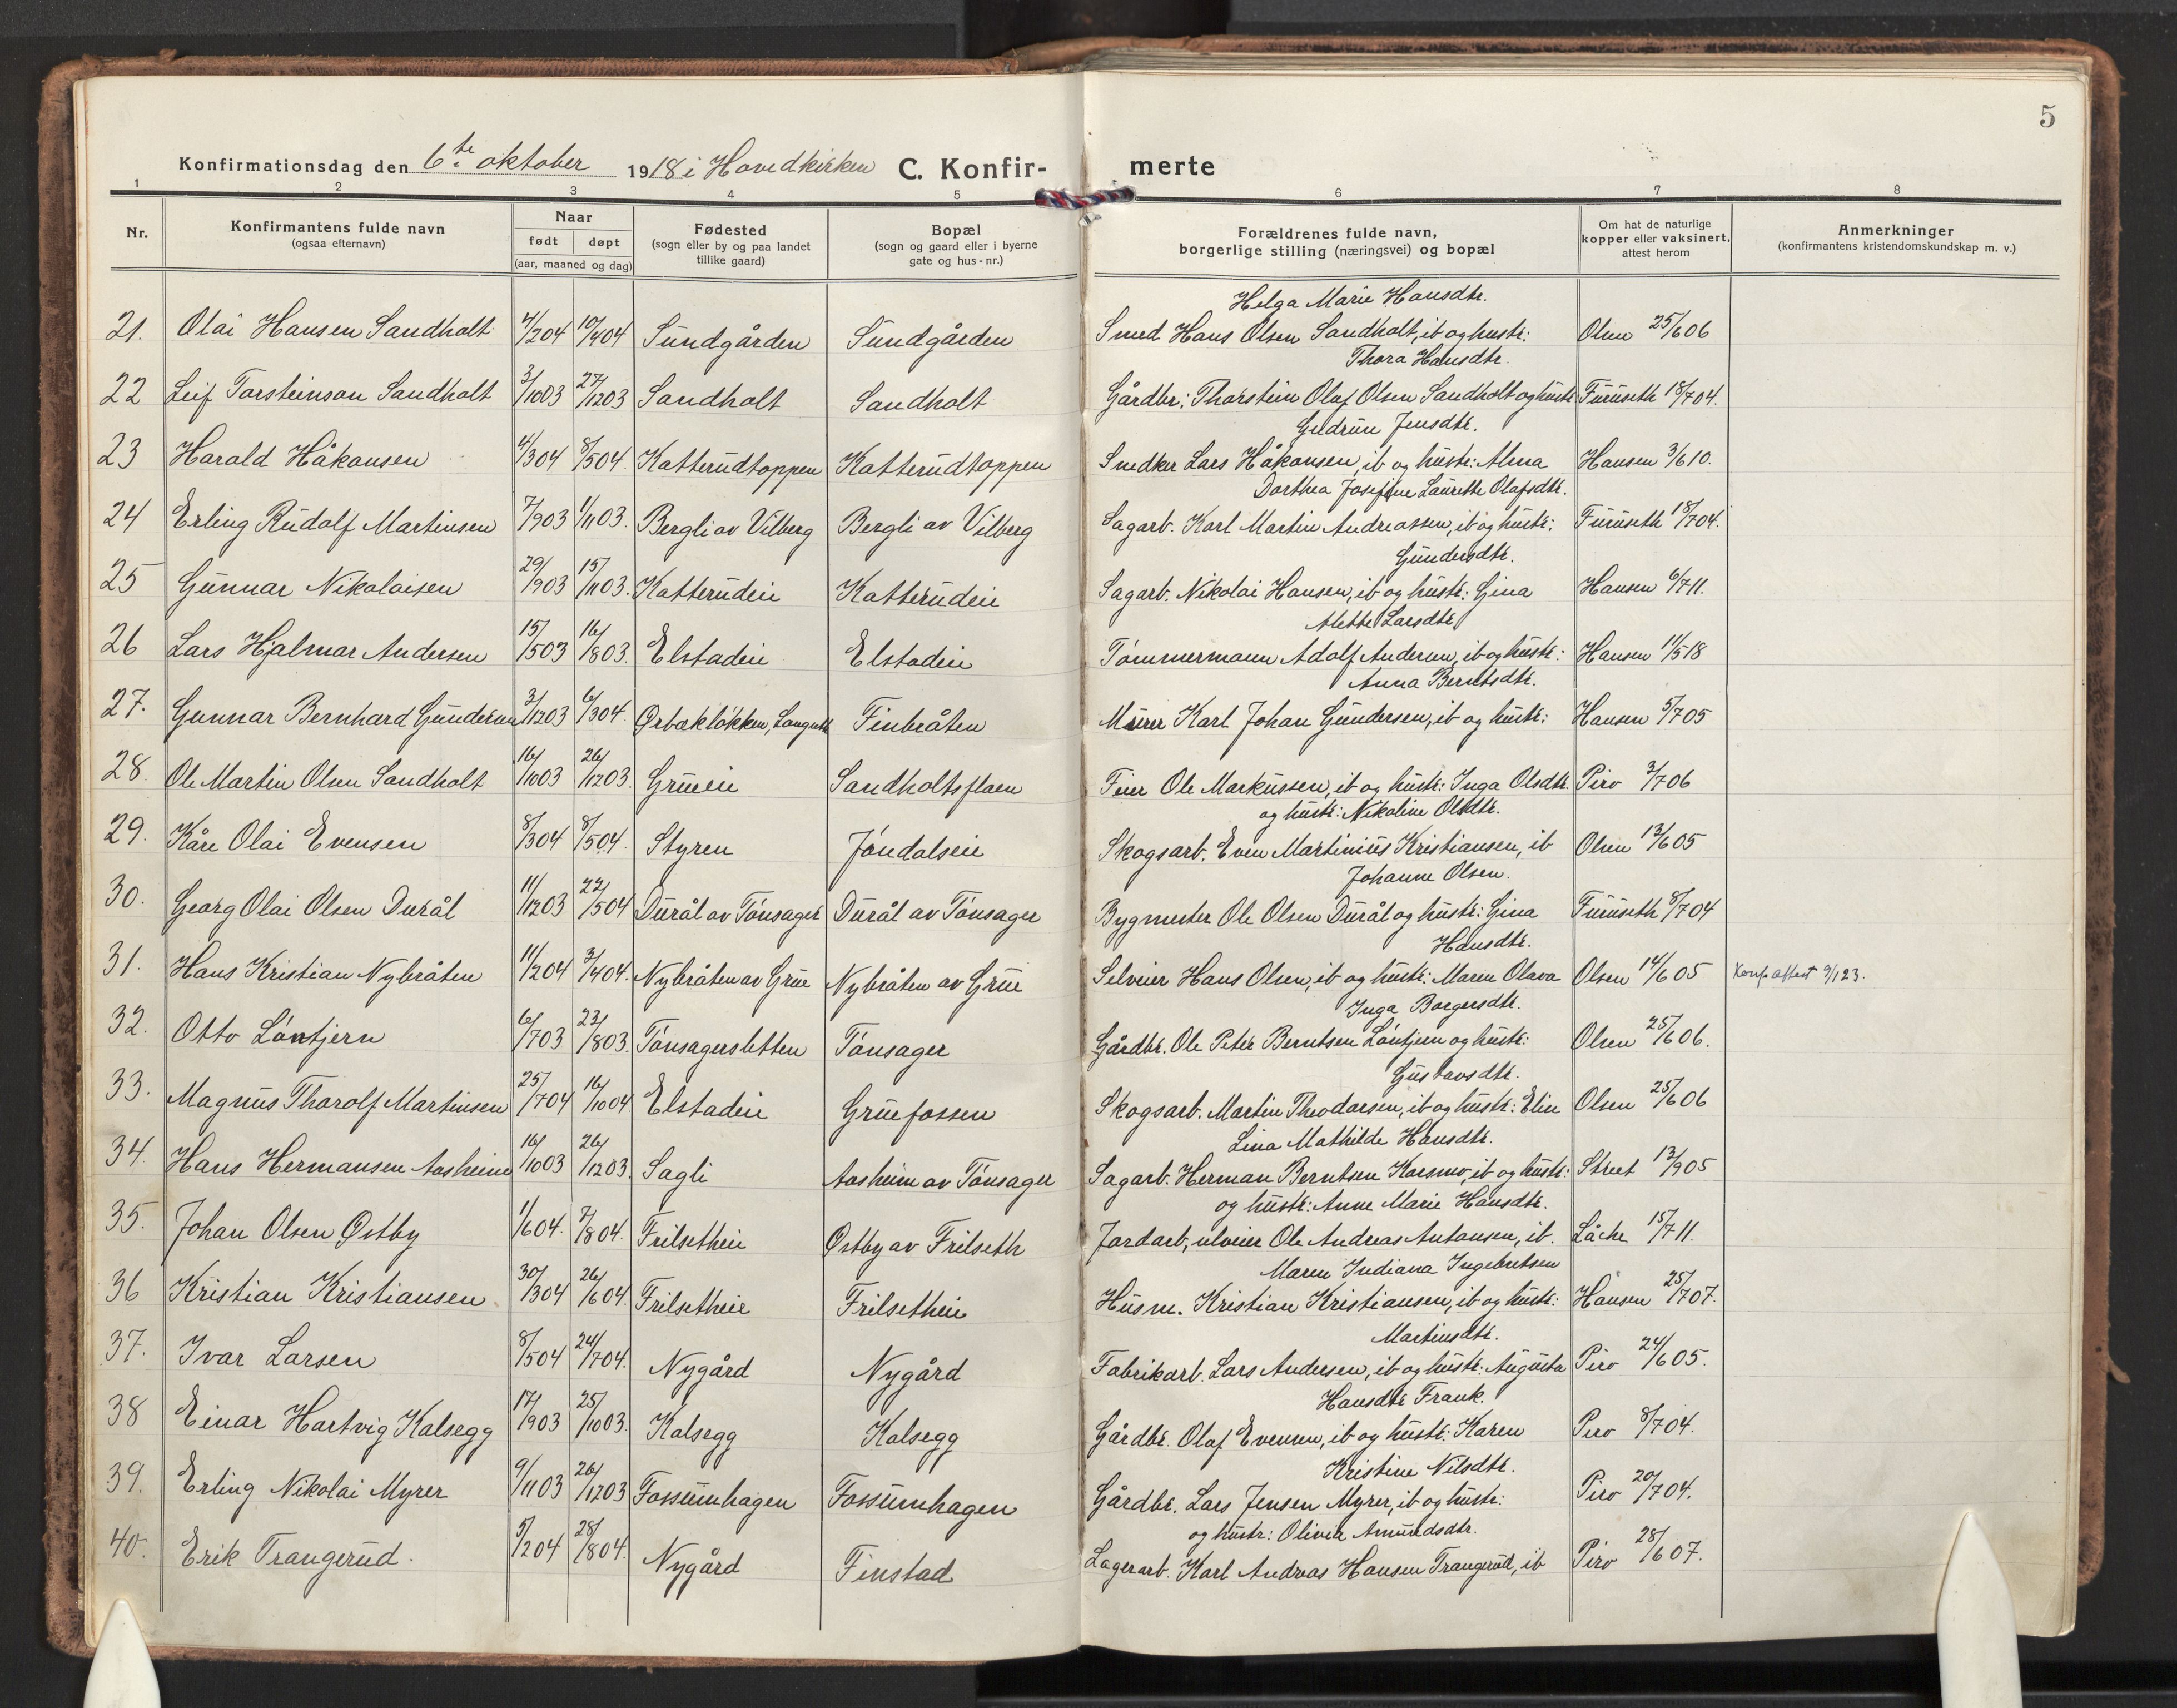 5
Konfirmationsdag den 6te oktober 1918 i Hovedkirken C. Konfir- merte
1 2 3 4 5 6 7 8
Nr.
Konfirmantens fulde navn
(ogsaa efternavn)
Naar
født døpt
(aar, maaned og dag)
Fødested
(sogn eller by og paa landet
tillike gaard)
Bopæl
(sogn og gaard eller i byerne
gate og hus-nr.)
Forældrenes fulde navn,
borgerlige stilling (næringsvei) og bopæl
Om hat de naturlige
kopper eller vaksinert,
attest herom
Anmerkninger
(konfirmantens kristendomskundskap m. v.)
Helga Marie Hansdtr.
21. Olai Hansen Sandholt 4/204 10/404 Sundgården Sundgården Smed Hans Olsen Sandholt, ib og hustr: Olsen 25/606
Thora Hansdtr.
22 Leif Torsteinson Sandholt 3/1003 27/1203 Sandholt Sandholt Gårdbr: Thorstein Olaf Olsen Sandholt og hustr Furuseth 18/704.
Gudrun Jensdtr.
23 Harald Håkonsen 4/304 8/504. Katterudtoppen Katterudtoppen Snedker Lars Håkonsen, ib og hustr: Alma Hansen 3/610.
Dorthea Josefine Laurette Olafsdtr.
24 Erling Rudolf Martinsen 7/903 1/1103. Bergli av Vilberg Bergli av Vilberg Sagarb. Karl Martin Andreassen, ib og hustr: Furuseth 18/704.
Gundersdtr.
25 Gunnar Nikolaisen 29/903 15/1103. Katterudeie Katterudeie Sagarb. Nikolai Hansen, ib og hustr: Gina Hansen 6/711.
Alette Larsdtr
26 Lars Hjalmar Andersen 15/503 16/803. Elstadeie Elstadeie Tømmermann Adolf Andersen, ib og hustr: Hansen 11/518
Anna Berntsdtr.
27. Gunnar Bernhard Gundersen 3/1203 6/304. Ørbækløkken, Langseth Finbråten Murer Karl Johan Gundersen, ib og hustr: Hansen 5/705
28. Ole Martin Olsen Sandholt 16/1003 26/1203. Grueeie Sandholtsflaen Feier Ole Markussen, ib og hustr: Inga Olsdtr. Piro 3/706
og hustr: Nikoline Olsdtr.
29. Kåre Olai Evensen 8/304 8/504. Styren Jøndalseie Skogsarb. Even Martinius Kristiansen, ib Olsen 13/605
Johanne Olsen.
30. Georg Olai Olsen Durål 11/1203 22/504 Durål av Tønsager Durål av Tønsager Bygmester Ole Olsen Durål og hustr: Gina Furuseth 8/704
Hansdtr.
31. Hans Kristian Nybråten 11/204 3/404. Nybråten av Grue Nybråten av Grue Selveier Hans Olsen, ib og hustr: Maren Olava Olsen 14/605 Konf.attest 9/123.
Inga Borgersdtr.
32. Otto Løntjern 6/703 23/803. Tønsagersletten Tønsager Gårdbr. Ole Peter Berntsen Løntjern og hustr: Olsen 25/606.
Gustavsdtr.
33. Magnus Thorolf Martinsen 25/704 16/1004 Elstadeie Gruefossen Skogsarb. Martin Theodorsen, ib og hustr: Elise Olsen 25/606
Lina Mathilde Hansdtr.
34. Hans Hermansen Aasheim 16/1003 26/1203. Sagli Aasheim av Tønsager Sagarb. Herman Berntsen Karsmo, ib og hustr: Street 13/905
og hustr: Anne Marie Hansdtr.
35. Johan Olsen Østby 1/604. 7/804. Frilsetheie Østby av Frilseth Jordarb, selveier Ole Andreas Antonsen, ib. Låche 15/711.
Maren Indiana Ingebretsen
36 Kristian Kristiansen 30/304 26/604. Frilsetheie Frilsetheie Husm. Kristian Kristiansen, ib og hustr: Hansen 25/707.
Martinsdtr.
37. Ivar Larsen 8/504 24/704. Nygård Nygård Fabrikarb. Lars Andersen, ib og hustr: Augusta Piro 24/605.
Hansdtr Frank.
38 Einar Hartvig Kalsegg 17/903 25/1003. Kalsegg Kalsegg Gårdbr. Olaf Evensen, ib og hustr: Karen Piro 8/704.
Kristine Nilsdtr.
39. Erling Nikolai Myrer 9/1103 26/1203 Fossumhagen Fossumhagen Gårdbr. Lars Jensen Myrer, ib og hustr: Piro 20/704.
og hustr: Olivia Amundsdtr.
40. Erik Trangerud. 5/204 28/804. Nygård Finstad Lagerarb. Karl Andreas Hansen Trangerud, ib Piro 28/607.